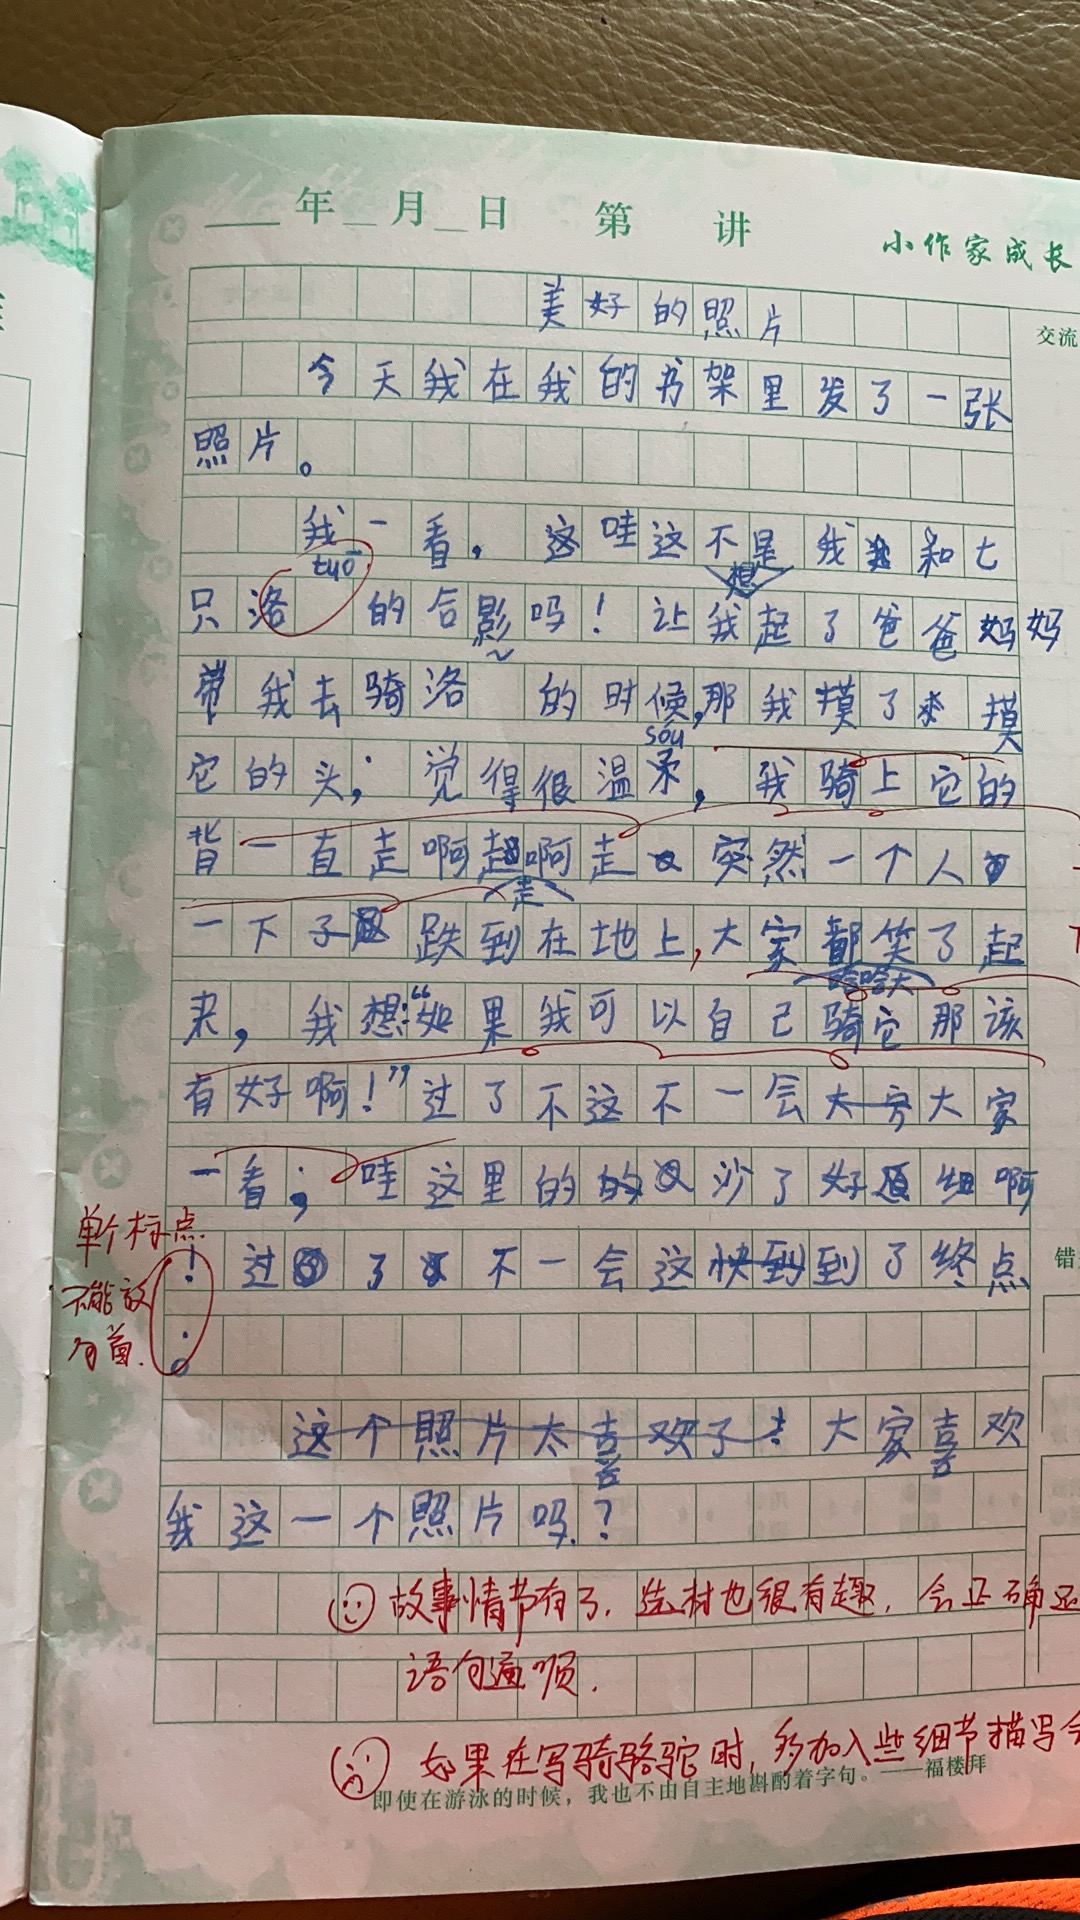 年 月 日 第 讲
小作家成长
交流
美好的照片
今天我在我的书架里发了一张
照片。
我一看，这哇这不是我和七
tuó
只洛 的合影吗！让我想起了爸爸妈妈
带我去骑洛 的时候，那我摸了摸
sóu
它的头，觉得很温柔，我骑上它的
背一直走啊走啊走 突然一个人
一下子 跌到在地上，大家哈哈大笑了起
来，我想：“如果我可以自己骑它那该
有好啊！”过了不这不一会大家
一看；哇这里的 沙了好 细啊
！过了不一会这到了终点
。
单个标点
不能放
句首.
错
大家喜欢
我这一个照片吗？
故事情节有了，选材也很有趣，会正确运
语句通顺.
如果在写骑骆驼时，多加入些细节描写会
即使在游泳的时候，我也不由自主地斟酌着字句。——福楼拜